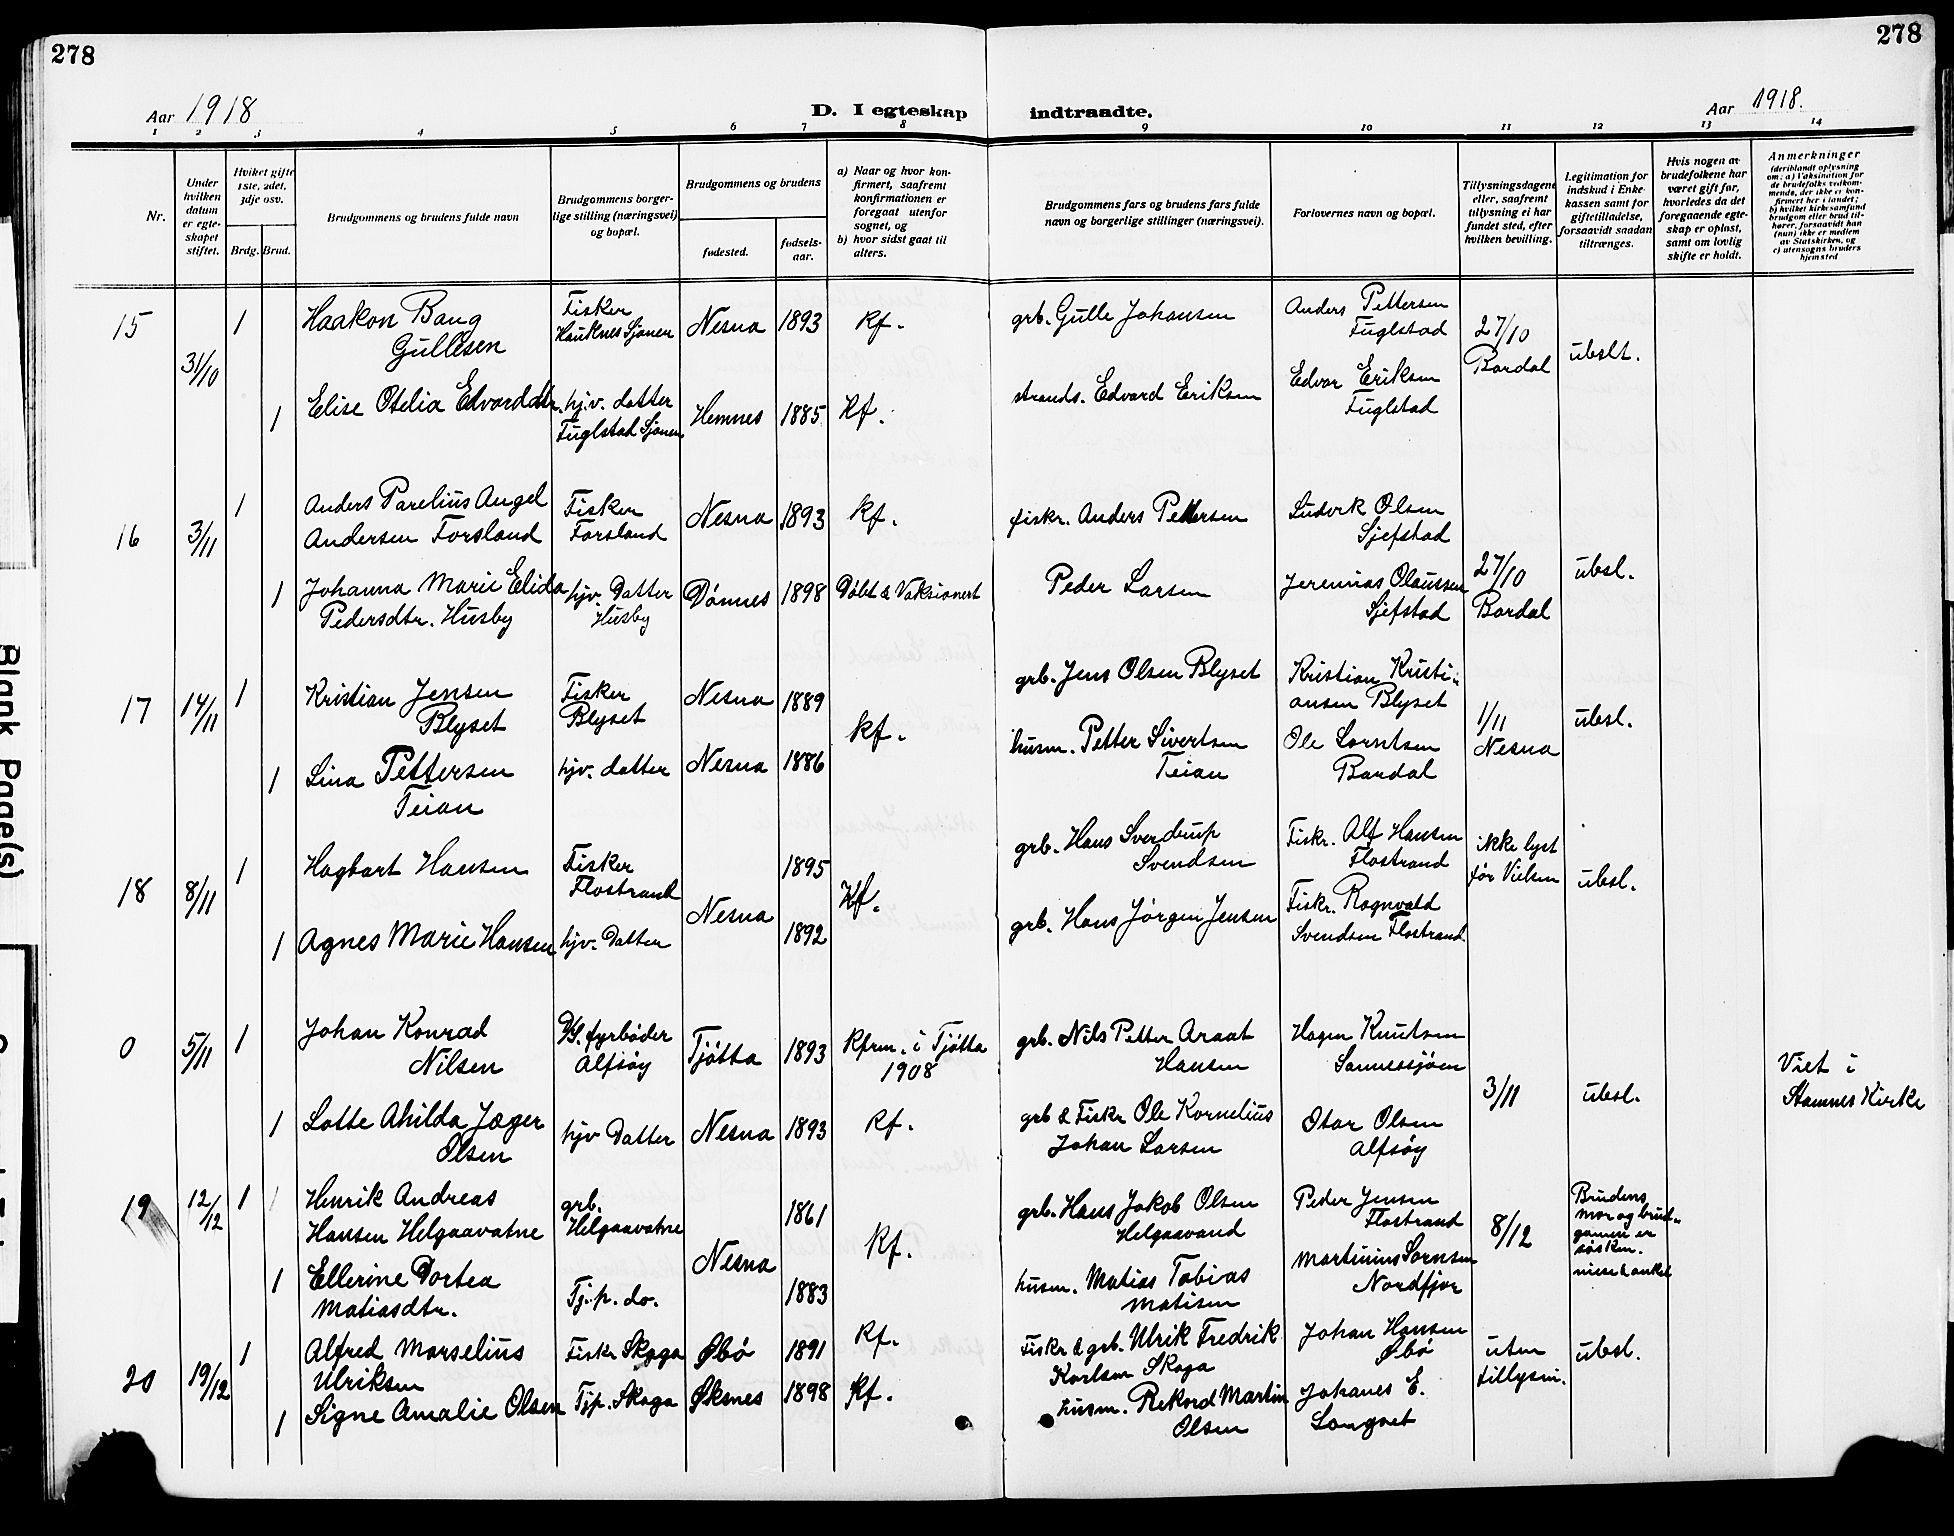 278
278
Aar 1918
D. I egteskap indtraadte.
Aar 1918.
1 2 3 4 5 6 7 8 9 10 11 12 13 14
Nr.
Under hvilken datum er egteskapet stiftet.
Hvilket gifte 1ste, 2det, 3dje osv.
Brdg. Brud.
Brudgommens og brudens fulde navn
Brudgommens borgerlige stilling (næringsvei) og bopæl.
Brudgommens og brudens
fødested.
fødselsaar.
a) Naar og hvor konfirmert, saafremt konfirmationen er foregaaet utenfor sognet, og
b) hvor sidst gaat til alters.
Brudgommens fars og brudens fars fulde navn og borgerlige stillinger (næringsvei).
Forlovernes navn og bopæl.
Tillysningsdagene eller, saafremt tillysning ei har fundet sted, efter hvilken bevilling.
Legitimation for indskud i Enkekassen samt for giftetilladelse, forsaavidt saadan tiltrænges.
Hvis nogen av brudefolkene har været gift før, hvorledes da det foregaaende egteskap er opløst, samt om lovlig skifte er holdt.
Anmerkninger (deriblandt oplysning om: a) Vaksination for de brudefolks vedkommende, der ikke er konfirmert her i landet; b) hvilket kirkesamfund brudgom eller brud tilhører, forsaavidt han (hun) ikke er medlem av Statskirken, og c) utensogns bruders hjemsted
15 31/10 1 Haakon Bang Gullesen Fisker Hauknes Sjonen Nesna 1893 kf. grb. Gulle Johansen Anders Pettersen Fuglstad 27/10 Bardal ubslt.
1 Elise Otelia Edvardsdtr. hjv. datter Fuglstad Sjonen Hemnes 1885 kf. strands. Edvard Eriksen Edvar Eriksen Fuglstad
16 3/11 1 Anders Parelius Angel Andersen Forsland Fisker Forsland Nesna 1893 kf. fiskr. Anders Pettersen Ludvik Olsen Sjefstad 27/10 Bardal ubsl.
1 Johanna Marie Elida Pedersdtr. Husby hjv. Datter Husby Dönnes 1898 Döbt & Vaksionert Peder Larsen Jeremias Olaussen Sjefstad
17 14/11 1 Kristian Jensen Blyset Fisker Blyset Nesna 1889 kf. grb. Jens Olsen Blyset Kristian Kristiansen Blyset 1/11 Nesna ubsl.
1 Lina Pettersen Teian hjv. datter Nesna 1886 husm. Petter Sivertsen Teian Ole Lorntsen Bardal
18 8/11 1 Hagbart Hansen Fisker Flostrand Nesna 1895 kf. grb. Hans Sverdrup Svendsen Fiskr. Alf Hansen Flostrand ikke lyst för Vielsen ubsl.
1 Agnes Marie Hansen hjv. Datter 1892 grb. Hans Jörgen Jensen Fiskr. Ragnvald Svendsen Flostrand
0 5/11 1 Johan Konrad Nilsen D/S. fyrböder Alfsöy Tjötta 1893 Kfrm. i Tjötta 1908 grb. Nils Petter Araat Hansen Hagen Knutsen Sannessjöen 3/11 ubsl. Viet i Stamnes Kirke
1 Lotte Ahilda Jæger Olsen hjv Datter Nesna 1893 kf. grb & Fiskr Ole Kornelius Johan Larsen Otar Olsen Alfsöy
19 12/12 1 Henrik Andreas Hansen Helgaavatne grb. Helgaavatne Nesna 1861 kf. grb. Hans Jakob Olsen Helgaavand Peder Jensen Flostrand 8/12 Brudens mor og brudgomen er sösken. niese & onkel
1 Ellerine Dortea Matiasdtr. Tj. p. do. 1883 husm. Matias Tobias Matisen Martinius Sörnsen Nordfjor
20 19/12 1 Alfred Marselius Ulriksen Fiskr Skaga Øbö 1891 kf. Fiskr & grb. Ulrik Fredrik Karlsen Skaga Johan Hansen Øbö uten tillysn. ubsl.
1 Signe Amalie Olsen Tjp. Skaga Øksnes 1898 kf. husm. Rekord Martin Olsen Johanes E. Langset
Blank Page(s)